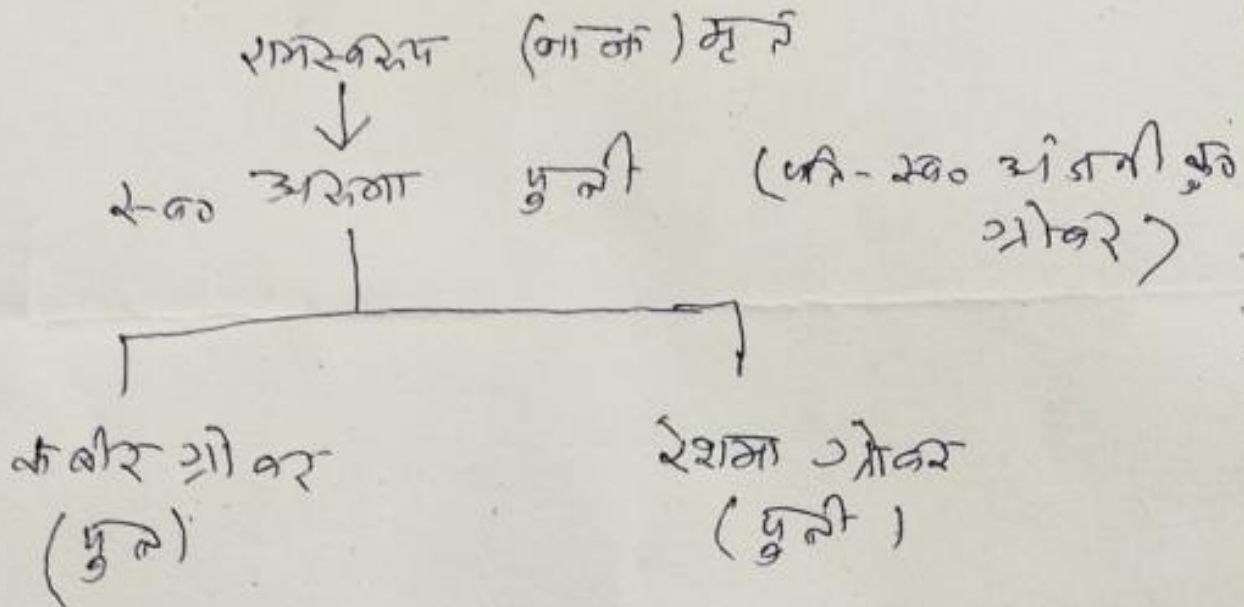 रामस्वरूप (नाना) मृत
स्व० अरुणा पुत्री (पति - स्व० अंजनी कु०
ग्रोवर)
कबीर ग्रोवर रेशमा ग्रोवर
(पुत्र) (पुत्री)